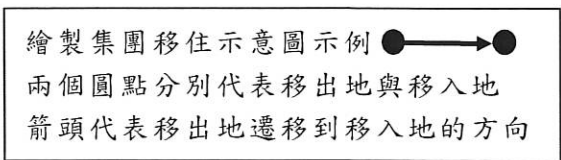 繪製集團移住示意圖示例
兩個圓點分別代表移出地與移入地
箭頭代表移出地遷移到移入地的方向